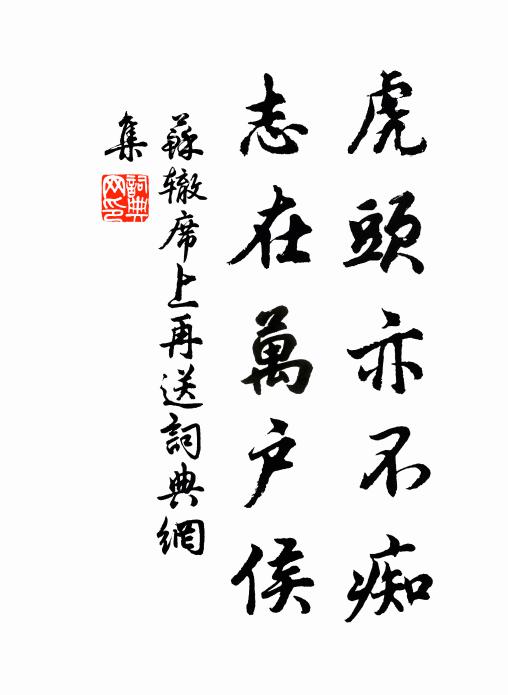 虎頭亦不痴
志在萬戶侯
蘇轍席上再送詞典網
集
詞典
网印